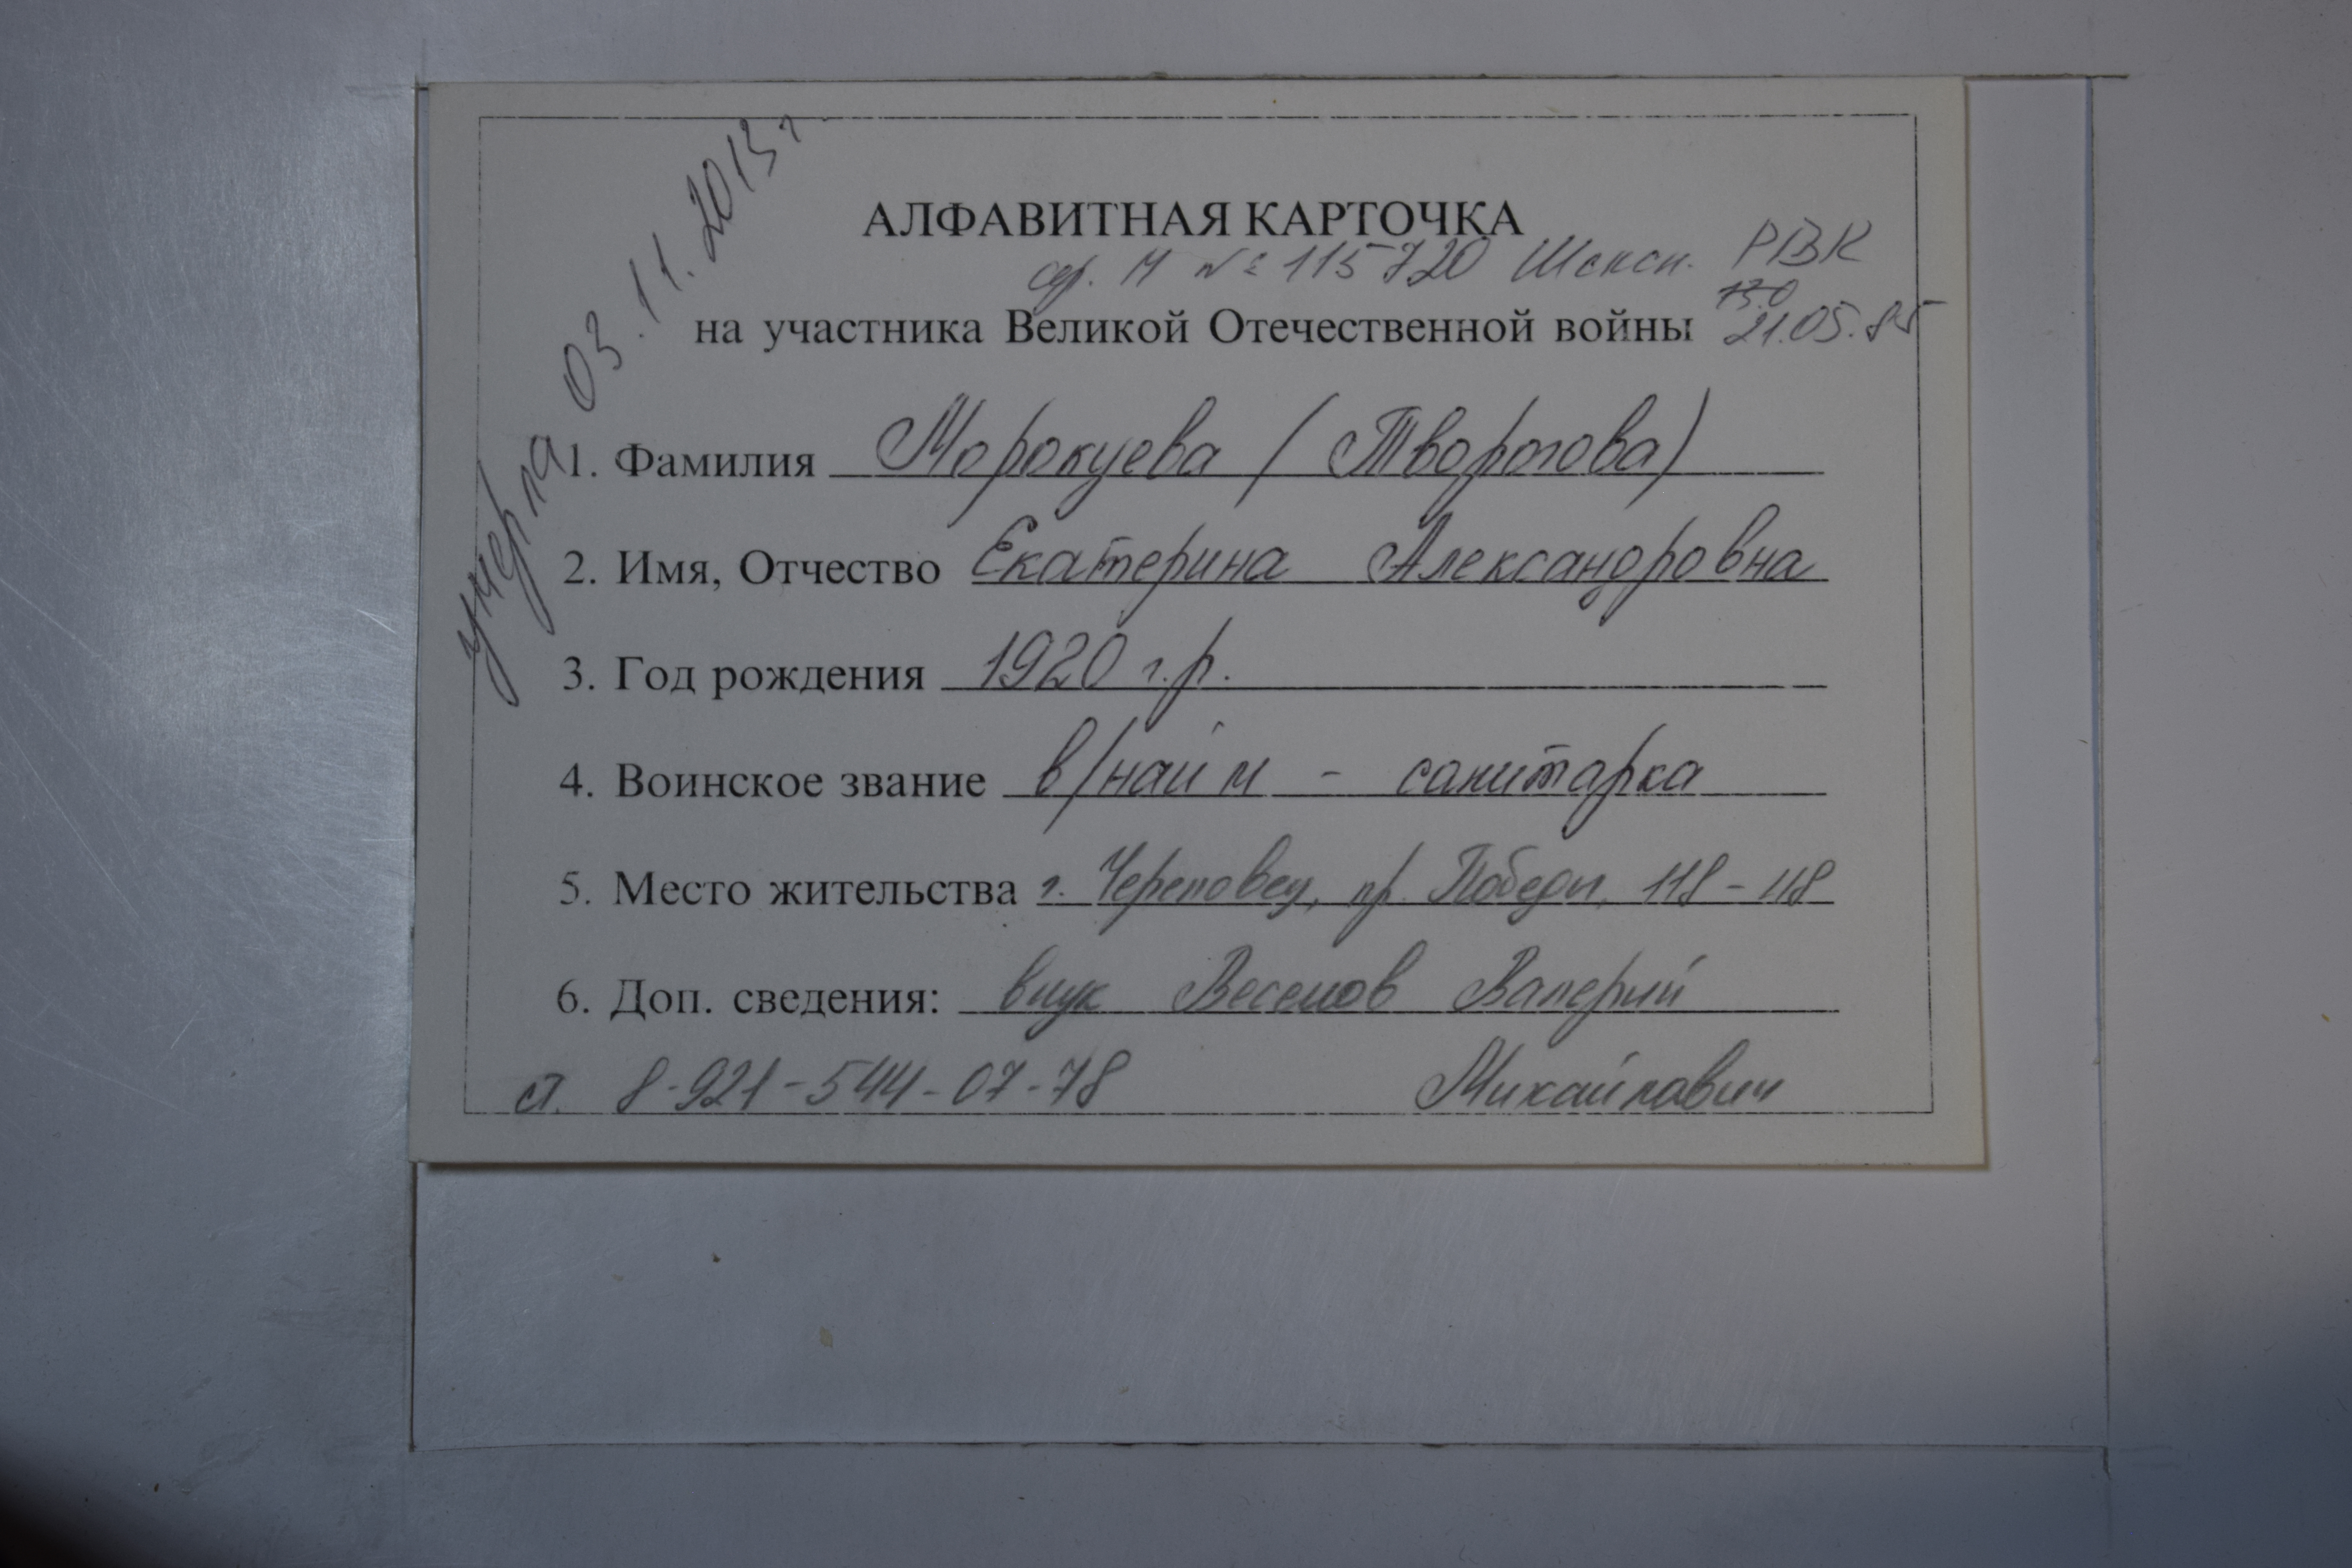 умерла 03.11.2013 г
АЛФАВИТНАЯ КАРТОЧКА
сер. М № 115720 Шексн. РВК
на участника Великой Отечественной войны 21.05.85
1. Фамилия Морокуева (Творогова)
2. Имя, Отчество Екатерина Александровна
3. Год рождения 1920 г.р.
4. Воинское звание в/найм - санитарка
5. Место жительства г. Череповец, пр. Победы, 118-118
6. Доп. сведения: внук Валерий
8-921-544-07-78 Михайлович